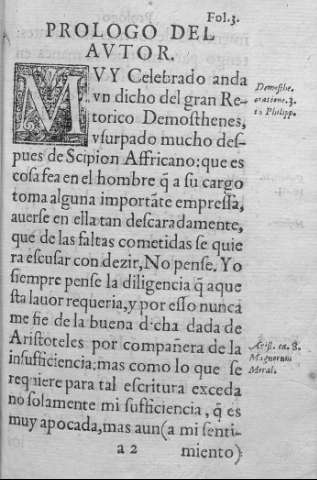 Fol.3.
PROLOGO DEL
AVTOR.
MVY Celebrado anda
vn dicho del gran Re-
torico Demosthenes,
vsurpado mucho des-
pues de Scipion Affricano: que es
cosa fea en el hombre q̃ a su cargo
toma alguna importãte empressa,
auerse en ella tan descaradamente,
que de las faltas cometidas se quie
ra escusar con dezir, No pense. Yo
siempre pense la diligencia q̃ aque
sta lauor requeria, y por esso nunca
me fie de la buena dicha dada de
Aristoteles por compañera de la
insufficiencia: mas como lo que se
requiere para tal escritura exceda
no solamente mi sufficiencia, q̃ es
muy apocada, mas aun (a mi senti-
a 2 miento)
Demosthe.
oratione.3.
Philipp.
Arist. in. 8.
Magnorum
Moral.